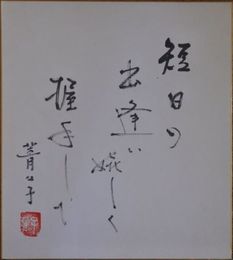 短日の
出逢い嬉しく
握手して